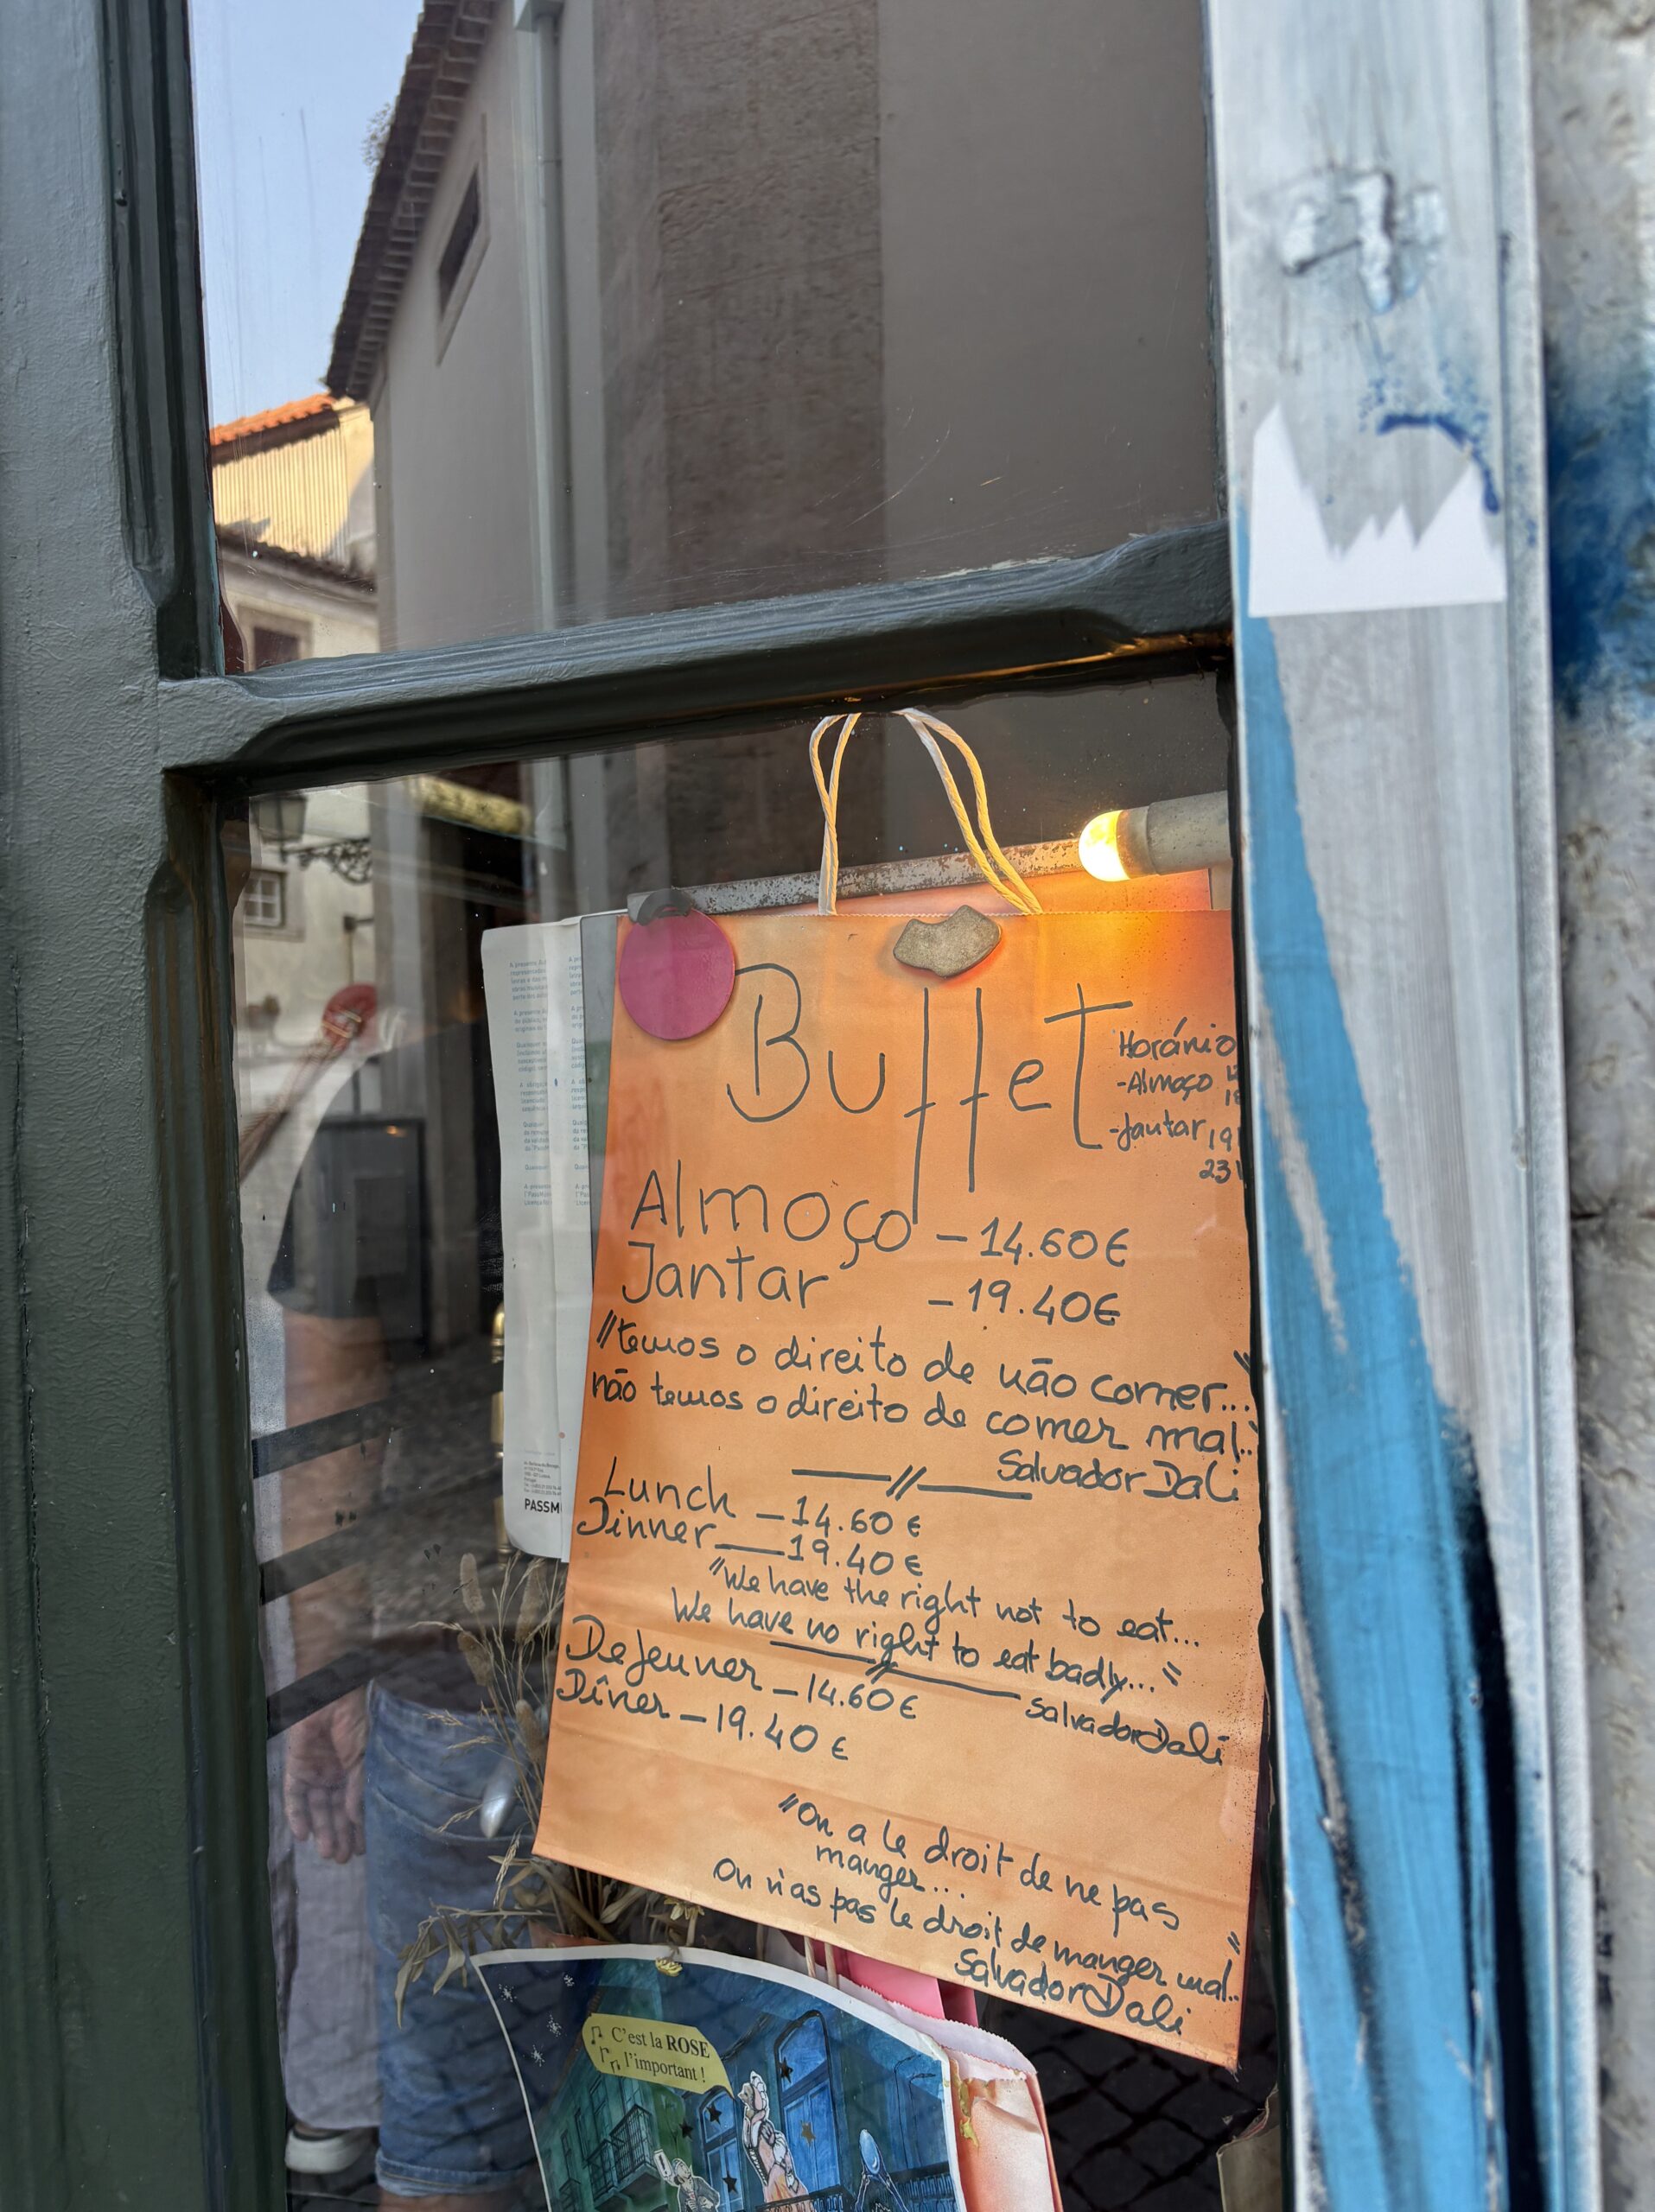 Buffet
Horário
-Almoço
-Jantar 19
23
Almoço - 14.60€
Jantar - 19.40€
"temos o direito de não comer...
não temos o direito de comer mal.."
Salvador Dali
Lunch - 14.60 €
Dinner - 19.40 €
"We have the right not to eat...
We have no right to eat badly..."
Salvador Dali
Dejeuner - 14.60€
Dîner - 19.40 €
"On a le droit de ne pas
manger...
On n'as pas le droit de manger mal.."
Salvador Dali
PASSM
C'est la ROSE
l'important !